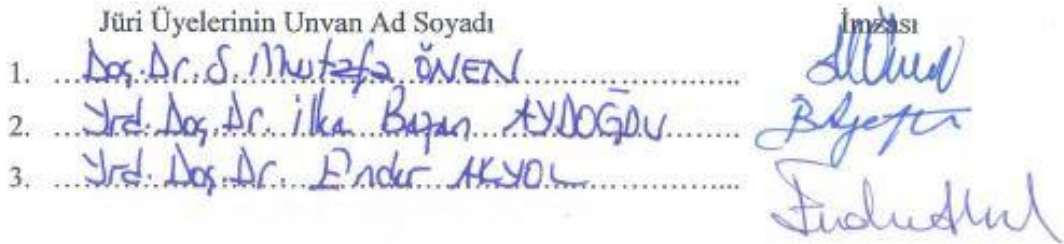 Jüri Üyelerinin Unvan Ad Soyadı İmzası
1. ...Doç.Dr. S. Mustafa ÖNEN...
2. ...Yrd. Doç. Dr. İlka AYDOĞDU...
3. ...Yrd. Doç. Dr. Ender AKYOL...